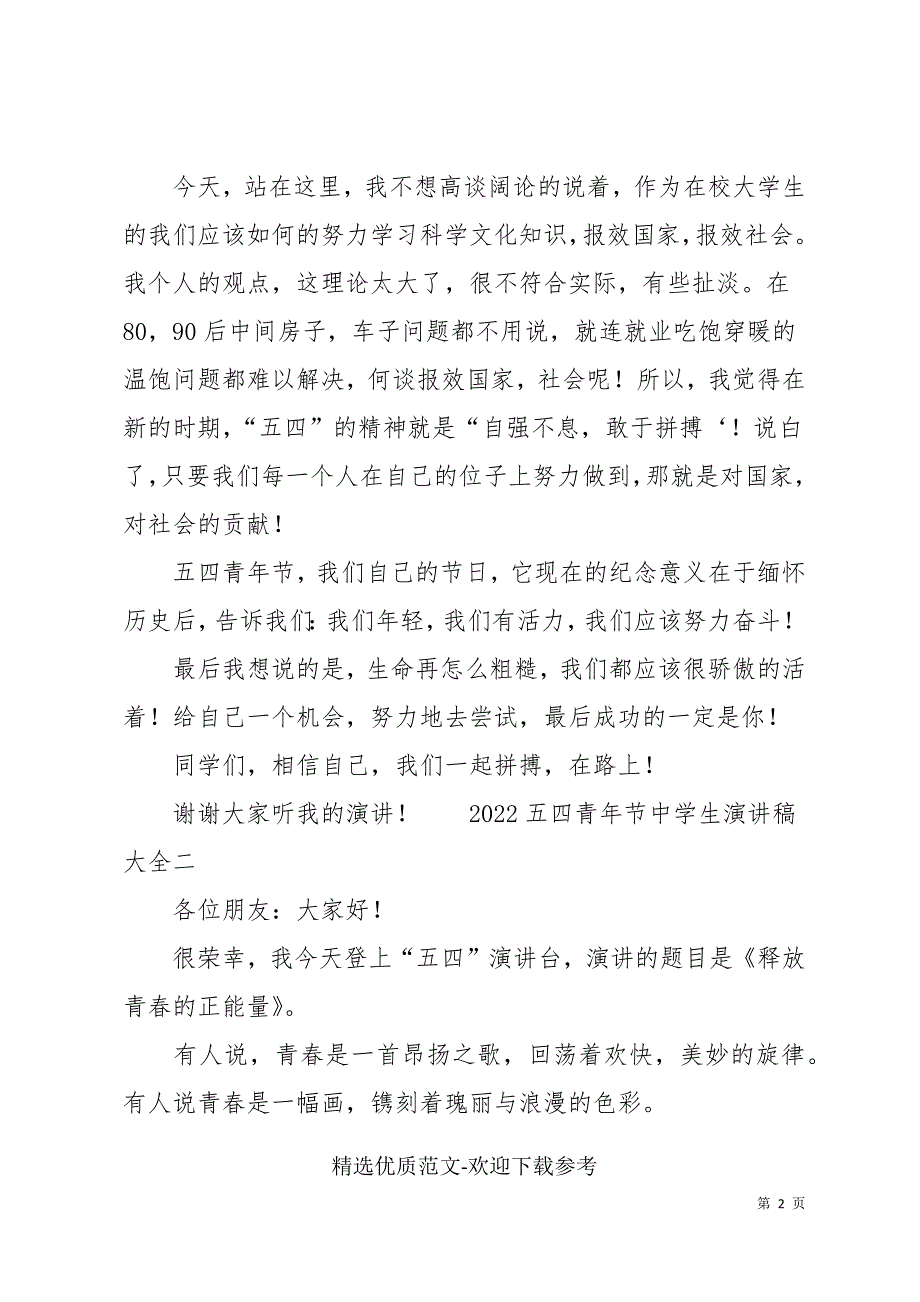 今天，站在这里，我不想高谈阔论的说着，作为在校大学生
的我们应该如何的努力学习科学文化知识，报效国家，报效社会。
我个人的观点，这理论太大了，很不符合实际，有些扯淡。在
80，90 后中间房子，车子问题都不用说，就连就业吃饱穿暖的
温饱问题都难以解决，何谈报效国家，社会呢！所以，我觉得在
新的时期，“五四”的精神就是“自强不息，敢于拼搏‘！说白
了，只要我们每一个人在自己的位子上努力做到，那就是对国家，
对社会的贡献！
五四青年节，我们自己的节日，它现在的纪念意义在于缅怀
历史后，告诉我们：我们年轻，我们有活力，我们应该努力奋斗！
最后我想说的是，生命再怎么粗糙，我们都应该很骄傲的活
着！给自己一个机会，努力地去尝试，最后成功的一定是你！
同学们，相信自己，我们一起拼搏，在路上！
谢谢大家听我的演讲！ 2022 五四青年节中学生演讲稿
大全二
各位朋友：大家好！
很荣幸，我今天登上“五四”演讲台，演讲的题目是《释放
青春的正能量》。
有人说，青春是一首昂扬之歌，回荡着欢快，美妙的旋律。
有人说青春是一幅画，镌刻着瑰丽与浪漫的色彩。
精选优质范文-欢迎下载参考
第 2 页